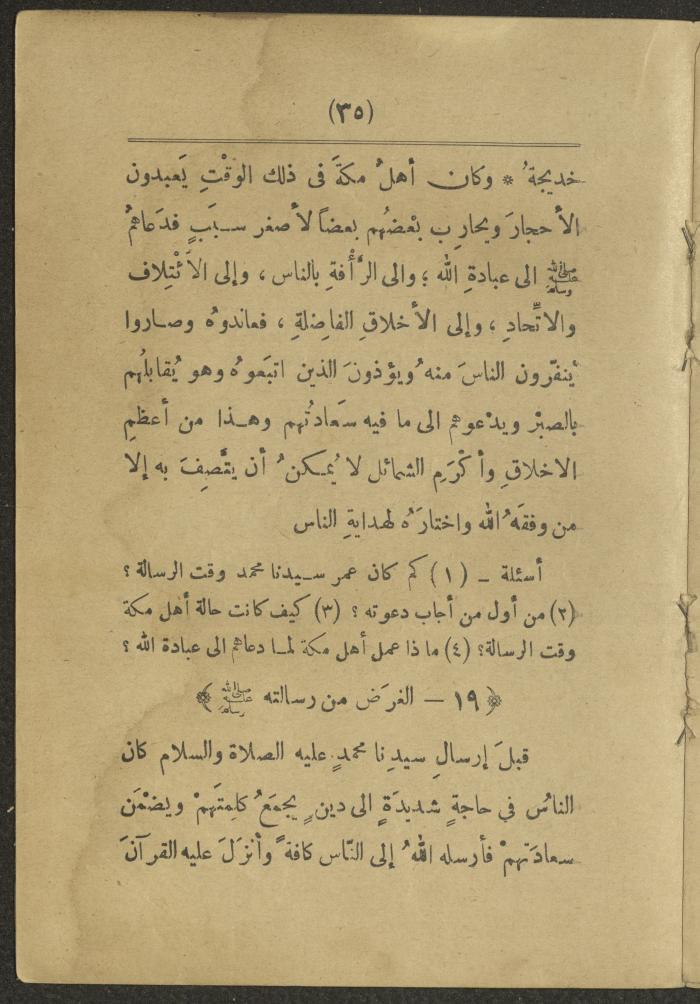 (٣٥)
خديجةُ * وكان أهلُ مكةَ فى ذلك الوقْتِ يَعبدون
الأحجارَ ويحارِب بعْضُهم بعضاً لأصغر سبَبٍ فدَعاهمُ
ﷺ الى عبادةِ الله ؛ والى الرَّأْفةِ بالناس ، وإلى الأئْتِلاف
والاتِّحادِ ؛ وإلى الأخلاقِ الفاضِلةِ ، فعاندوُه وصاروا
يُنفّرون الناسَ منه ُويؤذونَ الذين اتبَعوُه وهو يُقابلُهم
بالصبْرِ ويدْعوهم الى ما فيه سَعادتُهم وهذا من أعظمِ
الاخلاقِ وأكْرَمِ الشمائل لا يُمكنُ أن يتَّصِفَ به إلا
من وفقَهُ الله واختارَهُ لهدايةِ الناس
أسئلة – (١) كم كان عمر سيدنا محمد وقت الرسالة ؟
(٢) من أول من أجاب دعوته ؟ (٣) كيف كانت حالة أهل مكة
وقت الرسالة؟ (٤) ما ذا عمل أهل مكة لما دعاهم الى عبادة الله ؟
﴿ ١٩ – الغرَض من رسالته ﷺ ﴾
قبلَ إرسالِ سيدِنا محمدٍ عليه الصلاة والسلام كان
الناسُ في حاجةٍ شديدَةٍ الى دينٍ يجمَعُ كلِمتَهمْ ويضْمَن
سعادَتهمْ فأرسله اللهُ إلى النّاس كافةً وأنزَلَ عليه القرآنَ